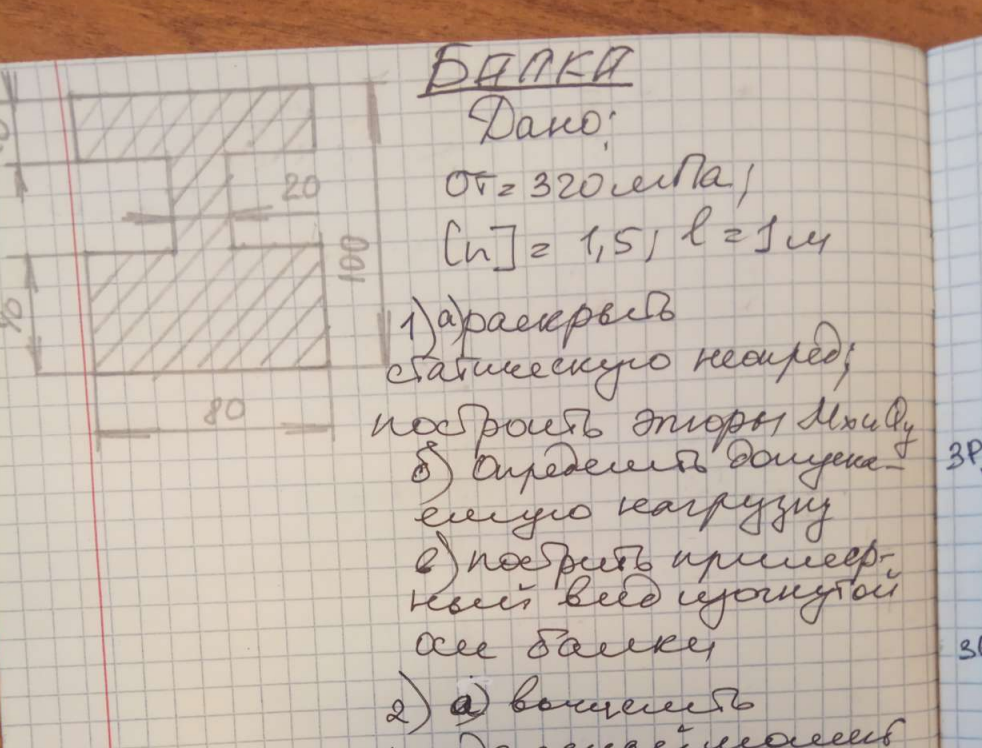 БАЛКА
Дано:
σт = 320 мПа;
[n] = 1,5; l = 1 м
20
100
80
1) а) раскрыть
статическую неопред;
построить эпюры Мx и Qy
б) определить допуска-
емую нагрузку
в) построить пример-
ный вид изогнутой
оси балки
2) а) вычислить
3P